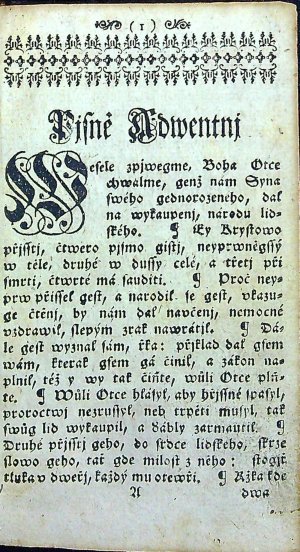 ( 1 )
Pjsně Adwentnj
Wesele zpjwegme, Boha Otce
chwalme, genž nám Syna
swého gednorozeného, dal
na wykaupenj, národu lid-
ského. ¶ Ey Krystowo
přjsstj, čtwero pjsmo gistj, neyprwněgssý
w těle, druhé w dussy celé, a třetj při
smrti, čtwrté má sauditi. ¶ Proč ney-
prw přissel gest, a narodil se gest, vkazu-
ge čtěnj, by nám dal naučenj, nemocné
vzdrawil, slepým zrak nawrátil. ¶ Dá-
le gest wyznal sám, řka: přjklad dal gsem
wám, kterak gsem gá činil, a zákon na-
plnil, též y wy tak čiňte, wůli Otce plň-
te. ¶ Wůli Otce hlásyl, aby hřjssné spasyl,
proroctwj nezrussyl, neb trpěti musyl, tak
swůg lid wykaupil, a ďábly zarmautil. ¶
Druhé přjsstj geho, do srdce lidského, skrze
slowo geho, tař gde milost z něho: stogjť
tluka v dweřj, každý mu otewři. ¶ Ržka kde
A dwa